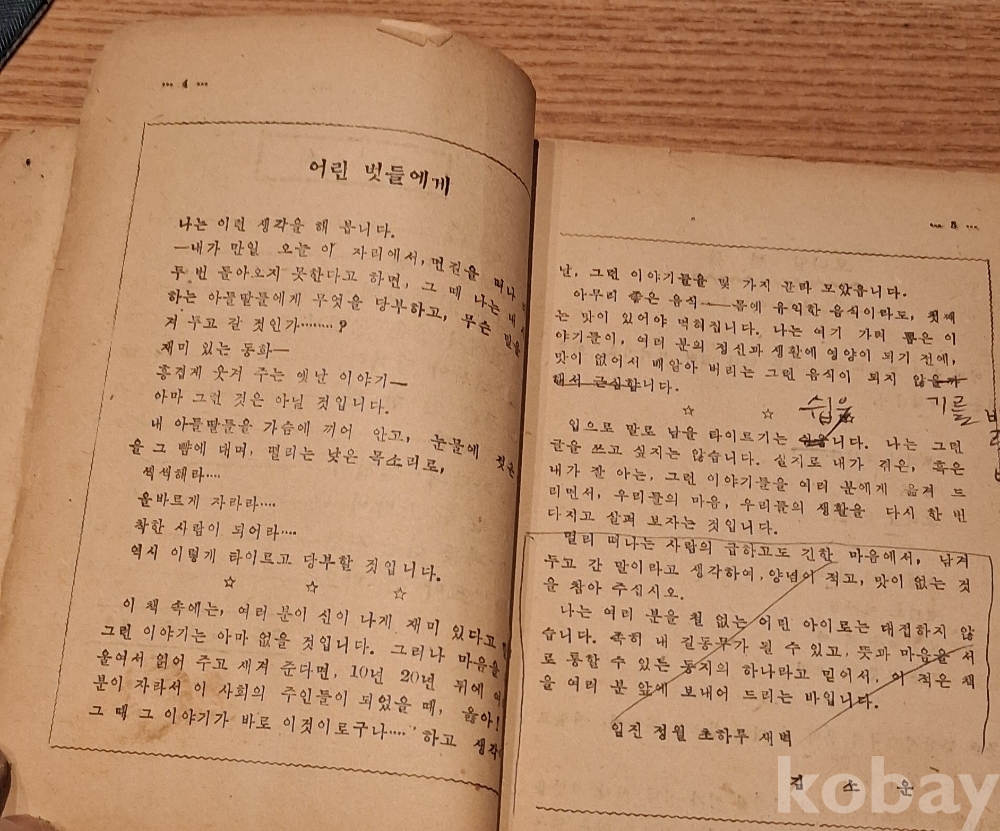 … 4 …
어린 벗들에게
나는 이런 생각을 해 봅니다.
—내가 만일 오늘 이 자리에서, 먼길을 떠나
두 번 돌아오지 못한다고 하면, 그 때 나는 내
하는 아들딸들에게 무엇을 당부하고, 무슨 말을
겨 두고 갈 것인가………?
재미 있는 동화—
흥겹게 웃겨 주는 옛날 이야기—
아마 그런 것은 아닐 것입니다.
내 아들딸들을 가슴에 끼어 안고, 눈물에 젖은
을 그 뺨에 대며, 떨리는 낮은 목소리로,
씩씩해라….
올바르게 자라라….
착한 사람이 되어라….
역시 이렇게 타이르고 당부할 것입니다.
☆ ☆ ☆
이 책 속에는, 여러 분이 신이 나게 재미 있다고
그런 이야기는 아마 없을 것입니다. 그러나 마음을
울여서 읽어 주고 새겨 준다면, 10년 20년 뒤에 여
분이 자라서 이 사회의 주인들이 되었을 때, 옳아!
그 때 그 이야기가 바로 이것이로구나…… 하고 생각
… 5 …
난, 그런 이야기들을 몇 가지 골라 모았읍니다.
아무리 좋은 음식——몸에 유익한 음식이라도, 첫째
는 맛이 있어야 먹혀집니다. 나는 여기 가려 뽑은 이
야기들이, 여러 분의 정신과 생활에 영양이 되기 전에,
맛이 없어서 배앝아 버리는 그런 음식이 되지 않을까
해서 근심합니다.
☆ ☆
쉽을 기를
입으로 말로 남을 타이르기는 쉽습니다. 나는 그런
글을 쓰고 싶지는 않습니다. 실지로 내가 겪은, 혹은
내가 잘 아는, 그런 이야기들을 여러 분에게 옮겨 드
리면서, 우리들의 마음, 우리들의 생활을 다시 한 번
다지고 살펴 보자는 것입니다.
멀리 떠나는 사람의 급하고도 긴한 마음에서, 남겨
두고 간 말이라고 생각하여, 양념이 적고, 맛이 없는 것
을 참아 주십시오.
나는 여러 분을 철 없는 어린 아이로는 대접하지 않
습니다. 족히 내 길동무가 될 수 있고, 뜻과 마음을 서
로 통할 수 있는 동지의 하나라고 믿어서, 이 적은 책
을 여러 분 앞에 보내어 드리는 바입니다.
임진 정월 초하루 새벽
김 소 운
kobay